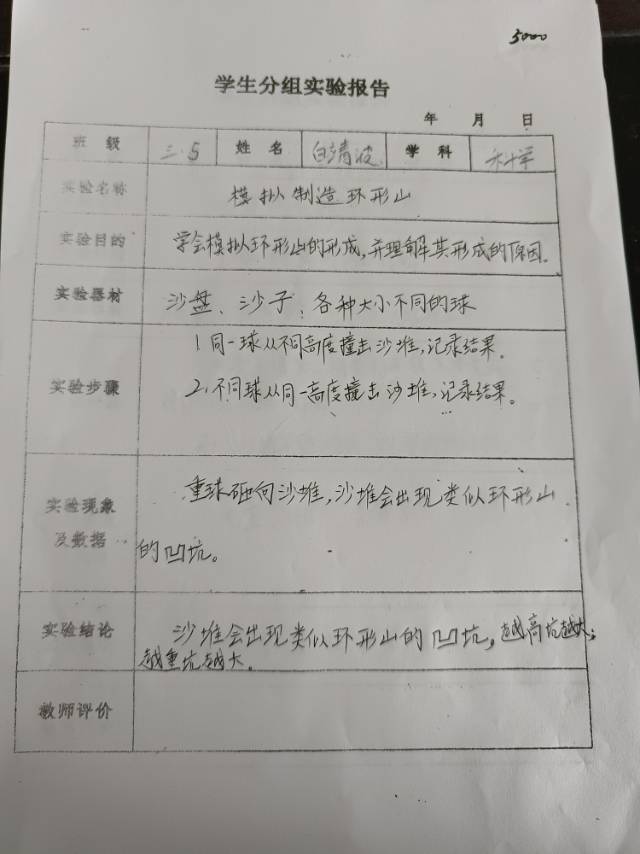 5000
学生分组实验报告
年 月 日
班 级 三.5 姓 名 白靖波 学 科 科学
实验名称 模拟制造环形山
实验目的 学会模拟环形山的形成,并理解其形成的原因。
实验器材 沙盘、沙子、各种大小不同的球
1.同一球从不同高度撞击沙堆,记录结果。
实验步骤
2.不同球从同一高度撞击沙堆,记录结果。
重球砸向沙堆,沙堆会出现类似环形山
实验现象
及数据
的凹坑。
实验结论 沙堆会出现类似环形山的凹坑,越高坑越大;
越重坑越大。
教师评价